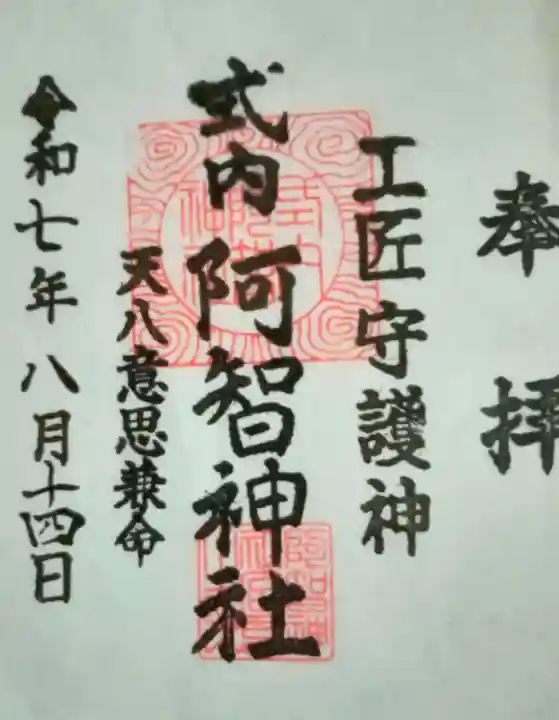 奉拝
工匠守護神
式内 阿智神社
天八意思兼命
令和七年八月十四日